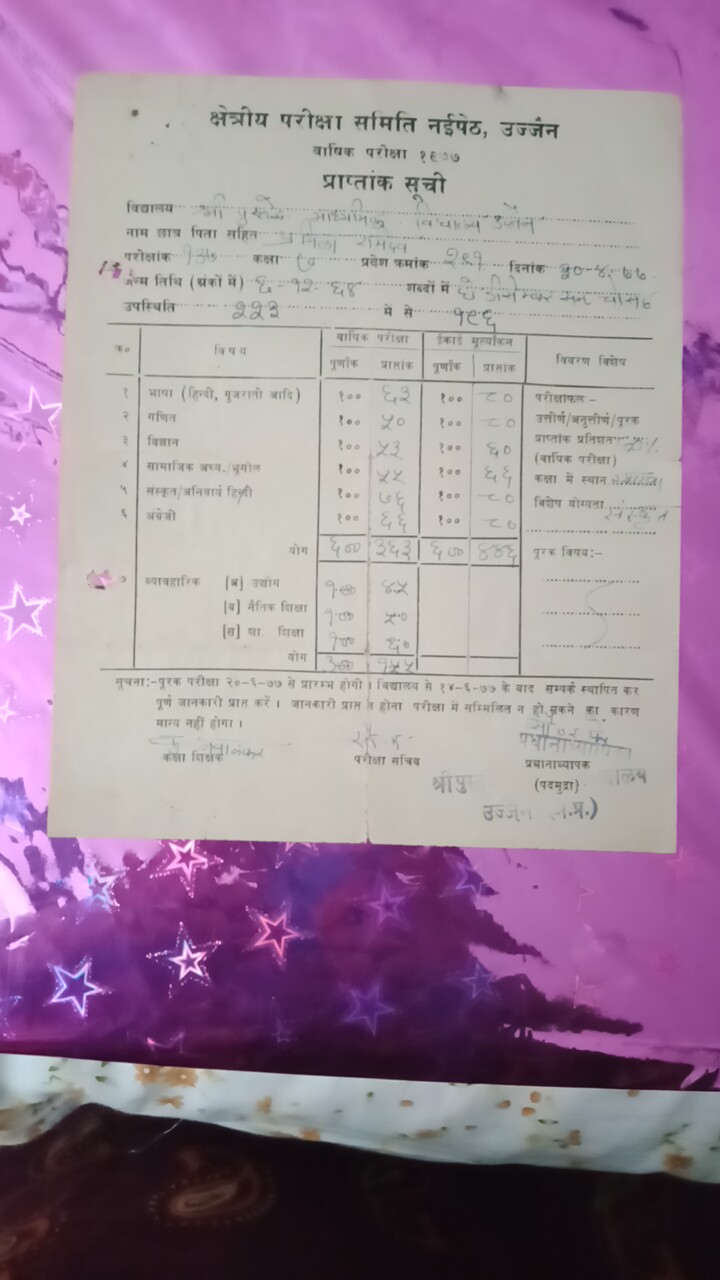 क्षेत्रीय परीक्षा समिति नईपेठ, उज्जैन
वार्षिक परीक्षा १९७७
प्राप्तांक सूची
विद्यालय श्री माध्यमिक विद्यालय उज्जैन
नाम छात्र पिता सहित प्रमिला रामदेव
परीक्षांक १३७ कक्षा ७ प्रवेश क्रमांक २९१ दिनांक ३०-४-७७
जन्म तिथि (अंकों में) ६-१२-६४ शब्दों में
उपस्थिति २२३ में से १९६
क्र० विषय वार्षिक परीक्षा ईकाई मूल्यांकन विवरण विशेष
पूर्णांक प्राप्तांक पूर्णांक प्राप्तांक
१ भाषा (हिन्दी, गुजराती आदि) १०० ६३ १०० ८० परीक्षाफल:-
२ गणित १०० ५० १०० ८० उत्तीर्ण/अनुत्तीर्ण/पूरक
३ विज्ञान १०० ५३ १०० ६० प्राप्तांक प्रतिशत
(वार्षिक परीक्षा)
४ सामाजिक अध्य./भूगोल १०० ५५ १०० ६६ कक्षा में स्थान
५ संस्कृत/अनिवार्य हिन्दी १०० ७६ १०० ८० विशेष योग्यता संस्कृत
६ अंग्रेजी १०० ६६ १०० ८०
योग ६०० ३६३ ६०० ४४६ पूरक विषय:-
७ व्यावहारिक [अ] उद्योग १०० ४५
[ब] नैतिक शिक्षा १०० ५०
[स] शा. शिक्षा १०० ६०
योग ३०० १५५
सूचना:-पूरक परीक्षा २०-६-७७ से प्रारम्भ होगी। विद्यालय से १४-६-७७ के बाद सम्पर्क स्थापित कर
पूर्ण जानकारी प्राप्त करें। जानकारी प्राप्त न होना परीक्षा में सम्मिलित न हो सकने का कारण
मान्य नहीं होगा।
प्रधानाध्यापिका
कक्षा शिक्षक परीक्षा सचिव प्रधानाध्यापक
(पदमुद्रा)
उज्जैन (म.प्र.)